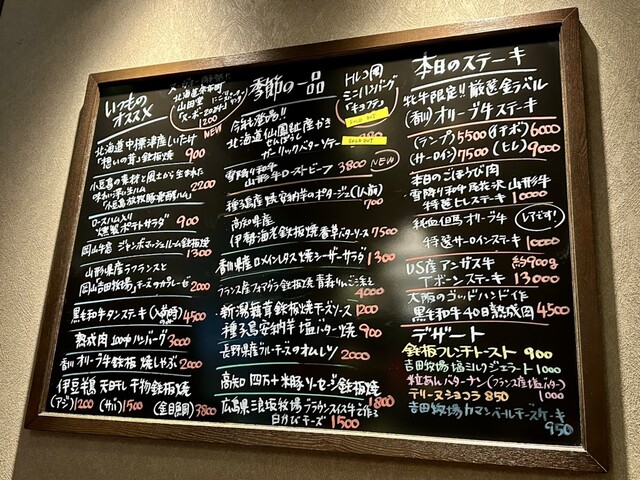 いつもの
オススメ
北海道余市町
山田堂
1200
NEW
北海道中標津産しいたけ
"想いの茸"鉄板焼 900
小豆島の素材と風土から生まれた
味わい深い生ハム 2200
「小豆島放牧豚発酵ハム」
ロースハム入り
燻製ポテトサラダ 900
岡山牛窓 ジャンボマッシュルーム鉄板焼
1300
山形県産ラフランスと
岡山吉田牧場チーズのカプレーゼ 2000
黒毛和牛タンステーキ 4500
熟成肉100%ハンバーグ 3000
香川オリーブ牛鉄板焼しゃぶ 2000
伊豆半島 天日干し干物鉄板焼
(アジ)1200 (サバ)1500 (金目鯛)3800
季節の一品
トルコ風
ミニハンバーグ
「キョフテ」
SOLD OUT
今年も登場!!
北海道仙鳳趾産かき
せんぽうし
ガーリックバターソテー
SOLD OUT
雪降り和牛
山形牛ローストビーフ 3800 NEW
種子島産 焼安納芋のポタージュ(1人前)
700
高知県産
伊勢海老鉄板焼香草バターソース 7500
香川県産ロメインレタス焼シーザーサラダ
1300
フランス産フォアグラ鉄板焼 青森りんご添え
4000
新潟舞茸鉄板焼チーズソース 1200
種子島安納芋塩バター焼 900
長野県産ブルーチーズのオムレツ
2000
高知四万十米豚ソーセージ鉄板焼
1800
広島県三良坂牧場ブラウンスイス牛で作る
白カビチーズ 1500
本日のステーキ
牝牛限定!!厳選金ラベル
(香川)オリーブ牛ステーキ
(ランプ)5500 (イチボ)6000
(サーロイン)7500 (ヒレ)9000
本日のごほうび肉
雪降り和牛尾花沢 山形牛
特選ヒレステーキ 10000
純血但馬オリーブ牛 レアです!
特選サーロインステーキ
10000
US産アンガス牛 約900g
Tボーンステーキ 13000
大阪のゴッドハンド作
黒毛和牛40日熟成肉 4500
デザート
鉄板フレンチトースト 900
吉田牧場塩ミルクジェラート 1000
粒あんバターナン(フランス産塩バター)
テリーヌショコラ 850 1000
吉田牧場カマンベールチーズケーキ
950